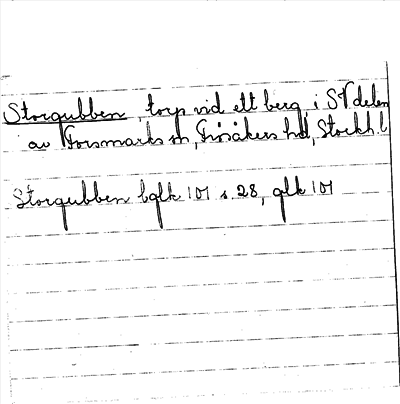 Storgubben, torp vid ett berg i S delen
av Forsmarks sn, Frösåkers hd, Stockh. l
Storgubben bglk 101 s. 28, glk 101